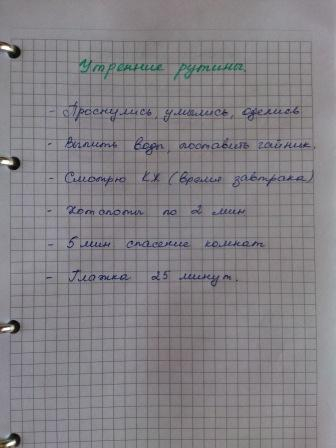 Утренние рутины.
- Проснулись, умылись, оделись
- Выпить воды, поставить чайник.
- Смотрю КХ (время завтрака)
- Хотспоты по 2 мин
- 5 мин спасение комнат
- Глажка 25 минут.